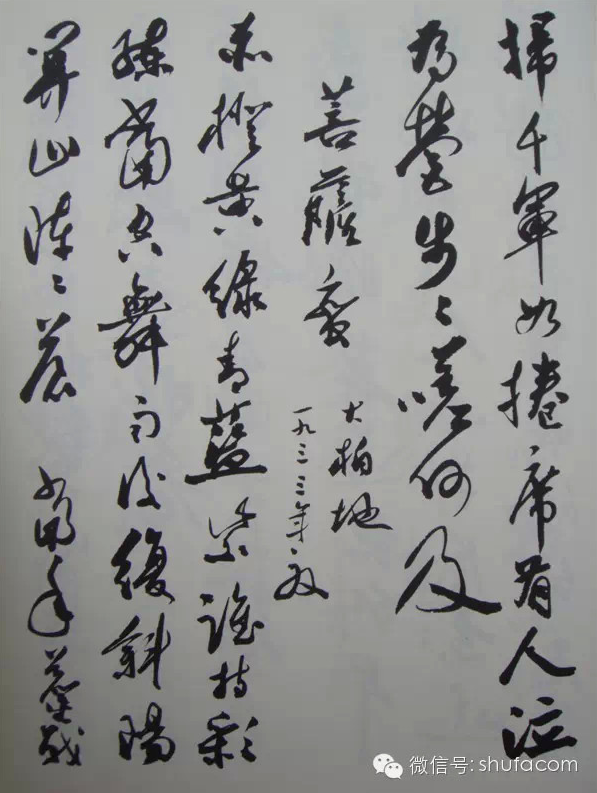 掃千軍如捲席有人泣
為營步〻嗟何及
菩薩蠻
大柏地
一九三三年夏
赤橙黄綠青藍紫誰持彩
練當空舞雨後復斜陽
關山陣〻蒼 當年鏖戰
微信号: shufacom